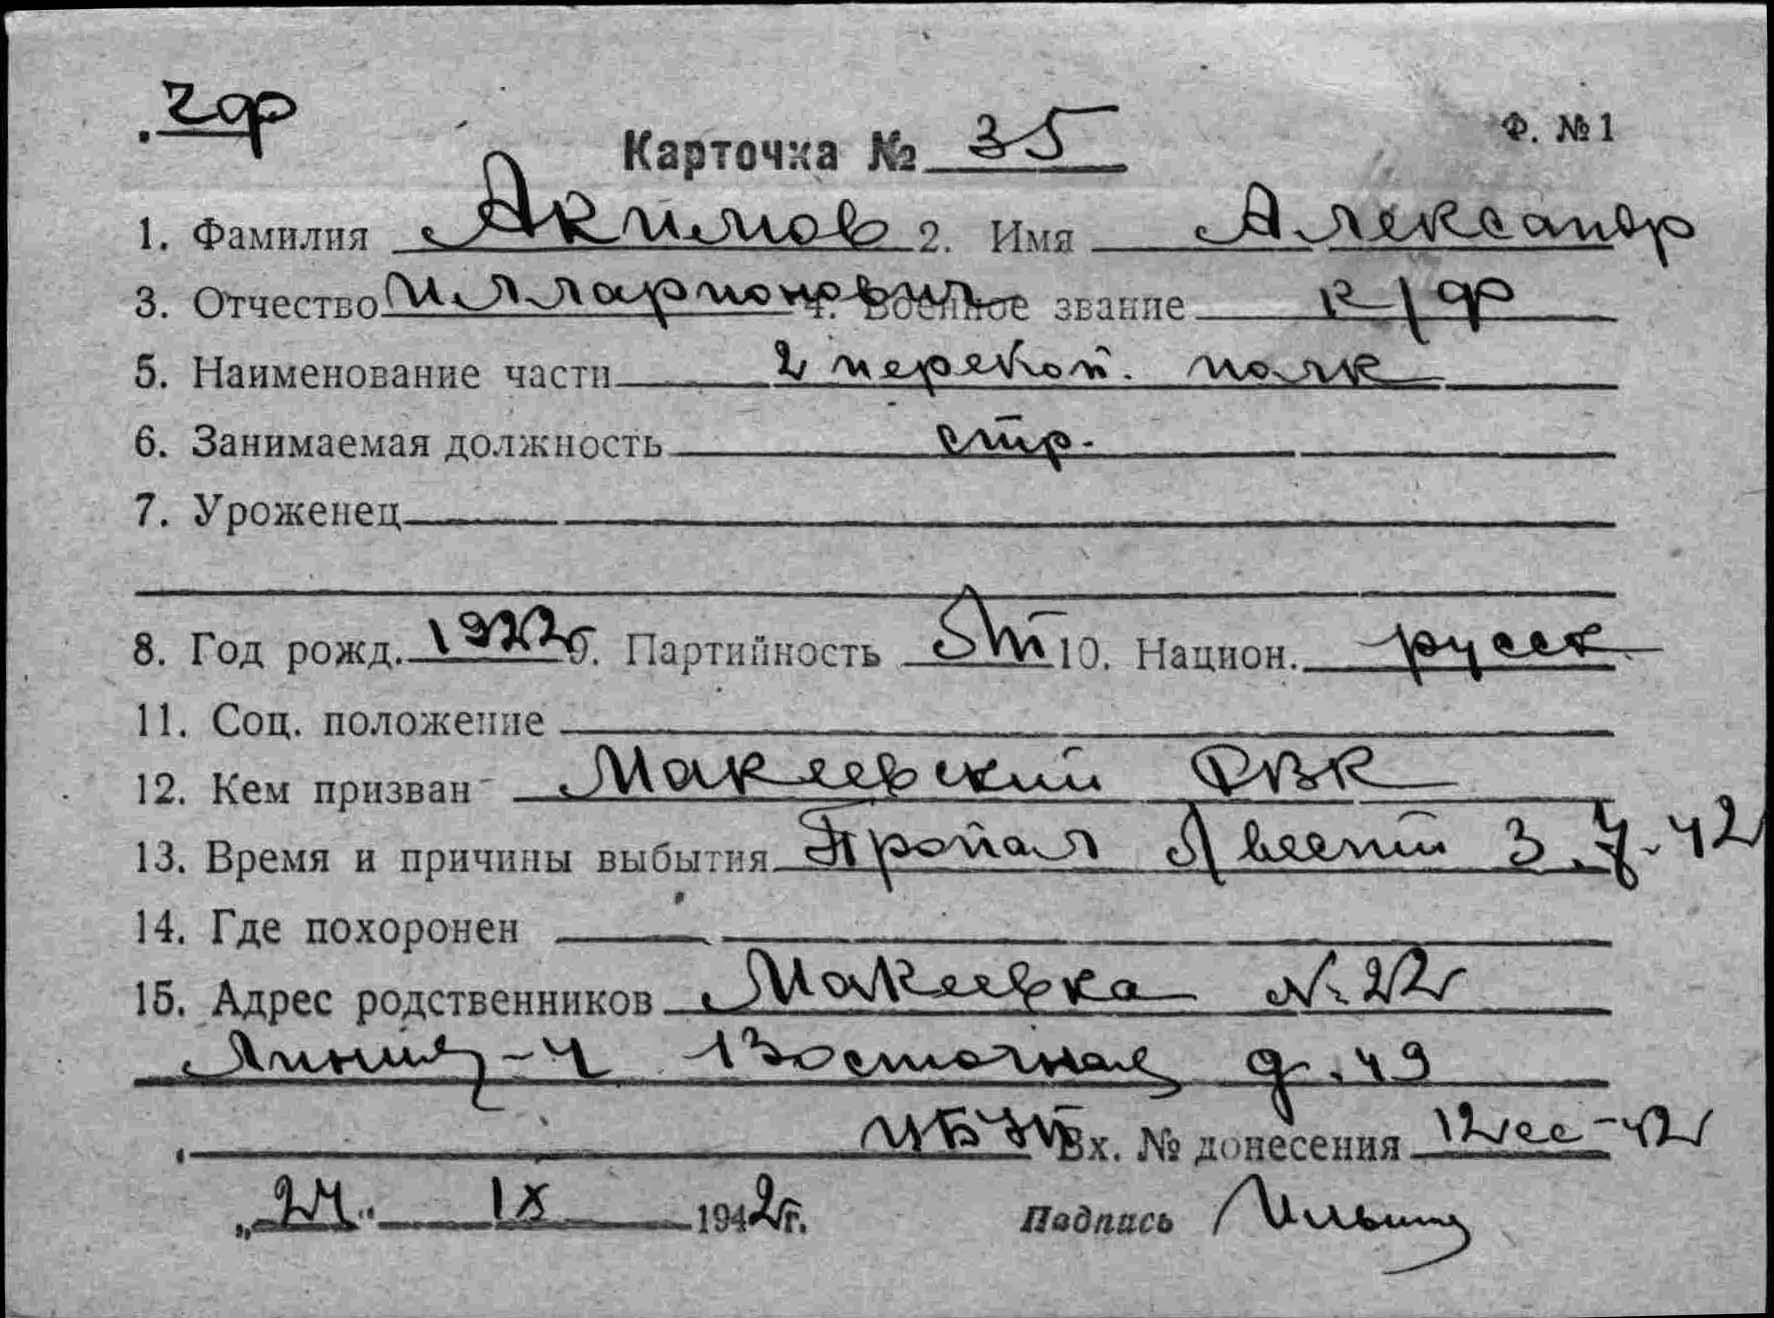 чф
Карточка № 35 Ф. № 1
1. Фамилия Акимов 2. Имя Александр
3. Отчество Илларионович 4. Военное звание к/ф
5. Наименование части 2 перекоп. полк
6. Занимаемая должность стр.
7. Уроженец
8. Год рожд. 1922 9. Партийность 10. Национ. русск
11. Соц. положение
12. Кем призван Макеевский РВК
13. Время и причины выбытия Пропал без вести 3.7.42
14. Где похоронен
15. Адрес родственников Макеевка № 22
Линия-ч Восточная д. 49
Вх. № донесения 12сс-42
„24“ IX 1942 г. Подпись